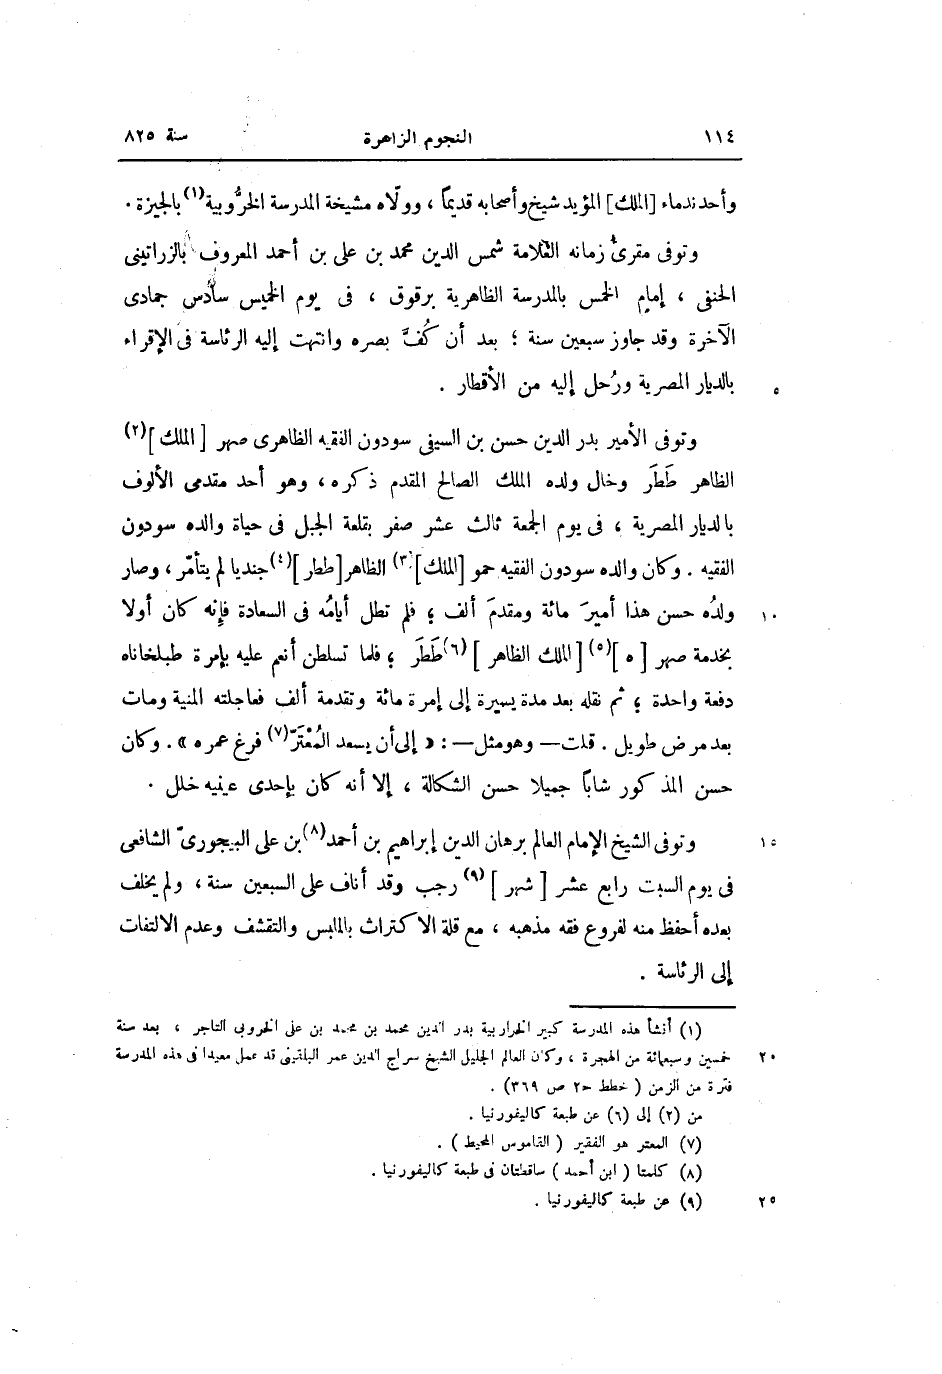 ١١٤ النجوم الزاهرة سنة ٨٢٥
وأحد ندماء [الملك] المؤيد شيخ وأصحابه قديمًا ، وولّاه مشيخة المدرسة الخرُّوبية(١) بالجيزة .
وتوفى مقرئُ زمانه العلامة شمس الدين محمد بن على بن أحمد المعروف بالزراتينى
الحنفى ، إمام الخمس بالمدرسة الظاهرية برقوق ، فى يوم الخميس سادس جمادى
الآخرة وقد جاوز سبعين سنة ؛ بعد أن كُفَّ بصره وانتهت إليه الرئاسة فى الإقراء
بالديار المصرية ورُحل إليه من الأقطار . ٥
وتوفى الأمير بدر الدين حسن بن السيفى سودون الفقيه الظاهرى صهر [ الملك ](٢)
الظاهر طَطَر وخال ولده الملك الصالح المقدم ذكره ، وهو أحد مقدمى الألوف
بالديار المصرية ، فى يوم الجمعة ثالث عشر صفر بقلعة الجبل فى حياة والده سودون
الفقيه . وكان والده سودون الفقيه حمو [الملك](٣) الظاهر [ططر](٤) جنديا لم يتأمّر ، وصار
ولدُه حسن هذا أميرَ مائة ومقدمَ ألف ؛ فلم تطل أيامُه فى السعادة فإنه كان أولا ١٠
بخدمة صهر [ ه ](٥) [الملك الظاهر ](٦) طَطَر ؛ فلما تسلطن أنعم عليه بإمرة طبلخاناه
دفعة واحدة ؛ ثم نقله بعد مدة يسيرة إلى إمرة مائة وتقدمة ألف فعاجلته المنية ومات
بعد مرض طويل . قلت — وهو مثل — : « إلى أن يسعد المُعْتَرّ(٧) فرغ عمره » . وكان
حسن المذكور شابًا جميلا حسن الشكالة ، إلا أنه كان بإحدى عينيه خلل .
وتوفى الشيخ الإمام العالم برهان الدين إبراهيم بن أحمد(٨) بن على البيجورىّ الشافعى ١٥
فى يوم السبت رابع عشر [ شهر ](٩) رجب وقد أناف على السبعين سنة ، ولم يخلف
بعده أحفظ منه لفروع فقه مذهبه ، مع قلة الاكتراث بالملبس والتقشف وعدم الالتفات
إلى الرئاسة .
(١) أنشأ هذه المدرسة كبير الخراربية بدر الدين محمد بن محمد بن على الخروبى التاجر ، بعد سنة
خمسين وسبعمائة من الهجرة ، وكان العالم الجليل الشيخ سراج الدين عمر البلقينى قد عمل معيدا فى هذه المدرسة ٢٠
فترة من الزمن ( خطط حـ٢ ص ٣٦٩ ) .
من (٢) إلى (٦) عن طبعة كاليفورنيا .
(٧) المعتر هو الفقير ( القاموس المحيط ) .
(٨) كلمتا ( ابن أحمد ) ساقطتان فى طبعة كاليفورنيا .
(٩) عن طبعة كاليفورنيا . ٢٥